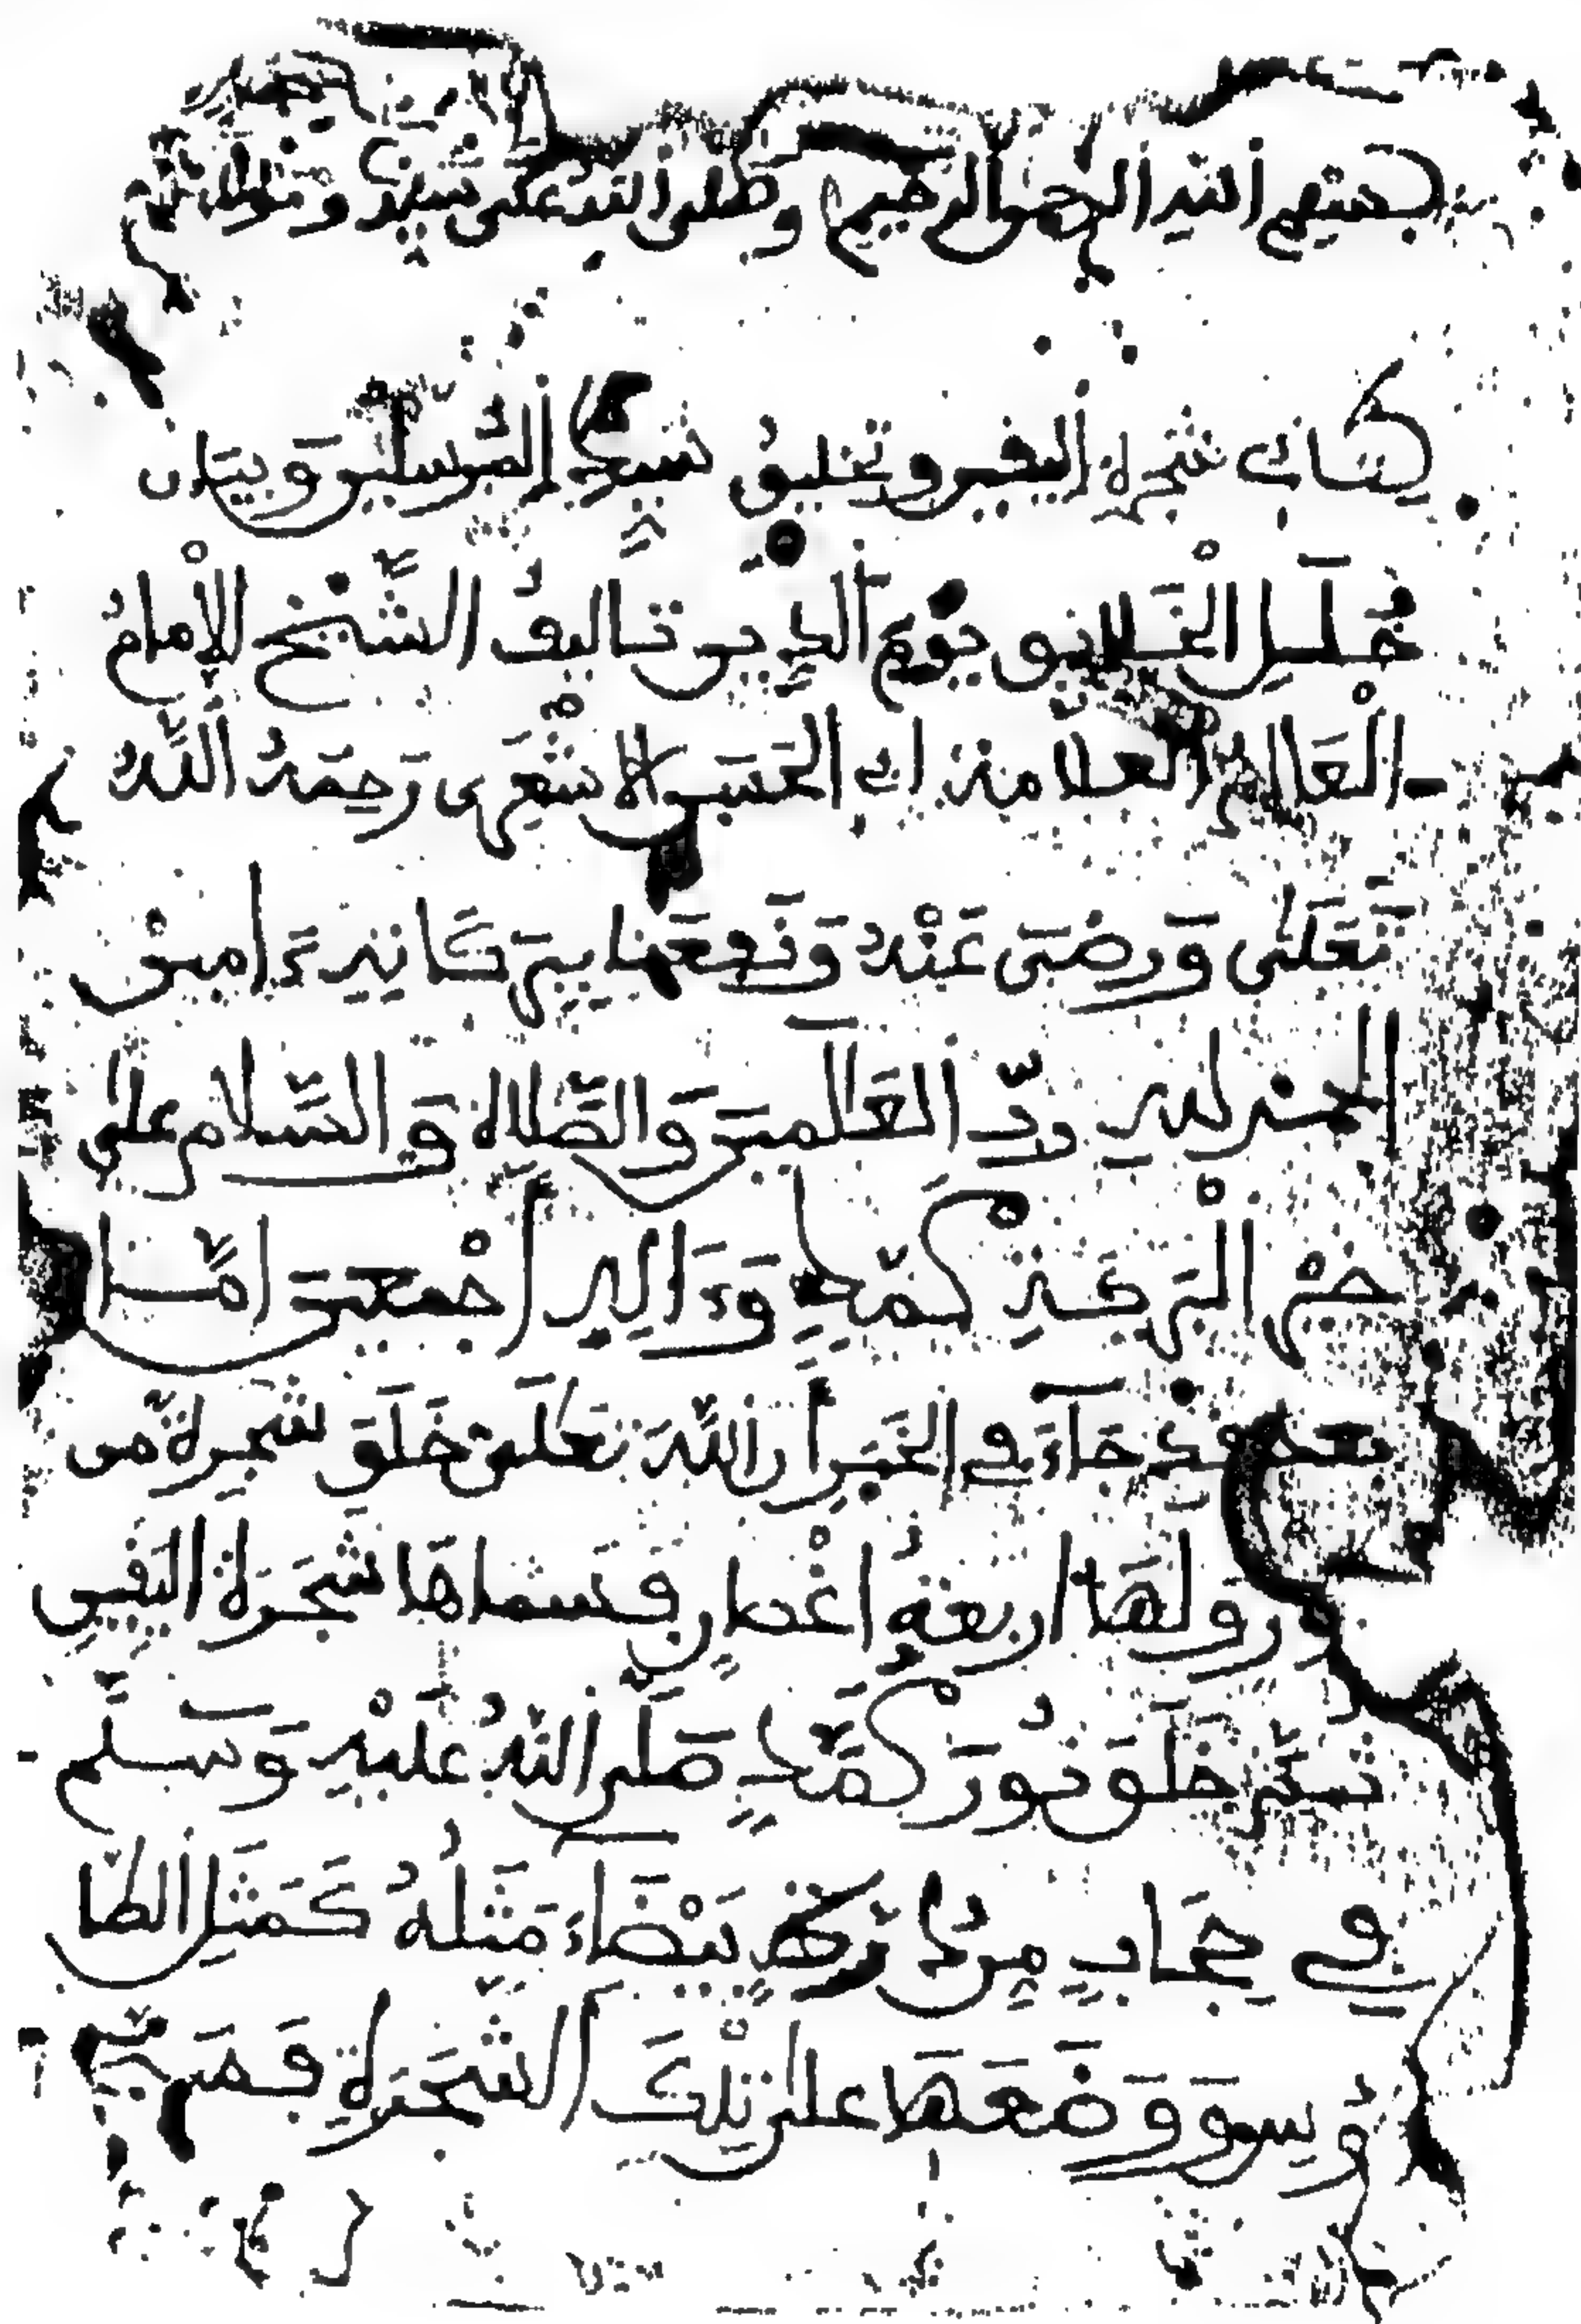 بسم الله الرحمن الرحيم وصلى الله على سيدنا ومولانا
كتاب شجرة اليفين وتخليق سيد المرسلين وبيان
حال الْخلايق يوم الدين تاليف الشّيخ الإمام
الْعالم العلامة ابي الحسن الاشعري رحمه الله
تعلى ورضى عنْه ونفعنا ببركاته ءامين
الحمد لله ربّ العلمين والصّلاة والسّلام على
خيْر الْبرية محمّد وءاله أجْمعين امّا
بعد فد جاءَ في الخبر أن الله تعلى خلق شجرة من
ولها اربعة اغْصان فسماها شجرة اليفين
ثمّ خلق نور محمّد صلّى الله عليْه وسلّم
في حجاب من درة بيْضاء مثله كمثل الطا
وس ووضعها على تلْك الشّجرة